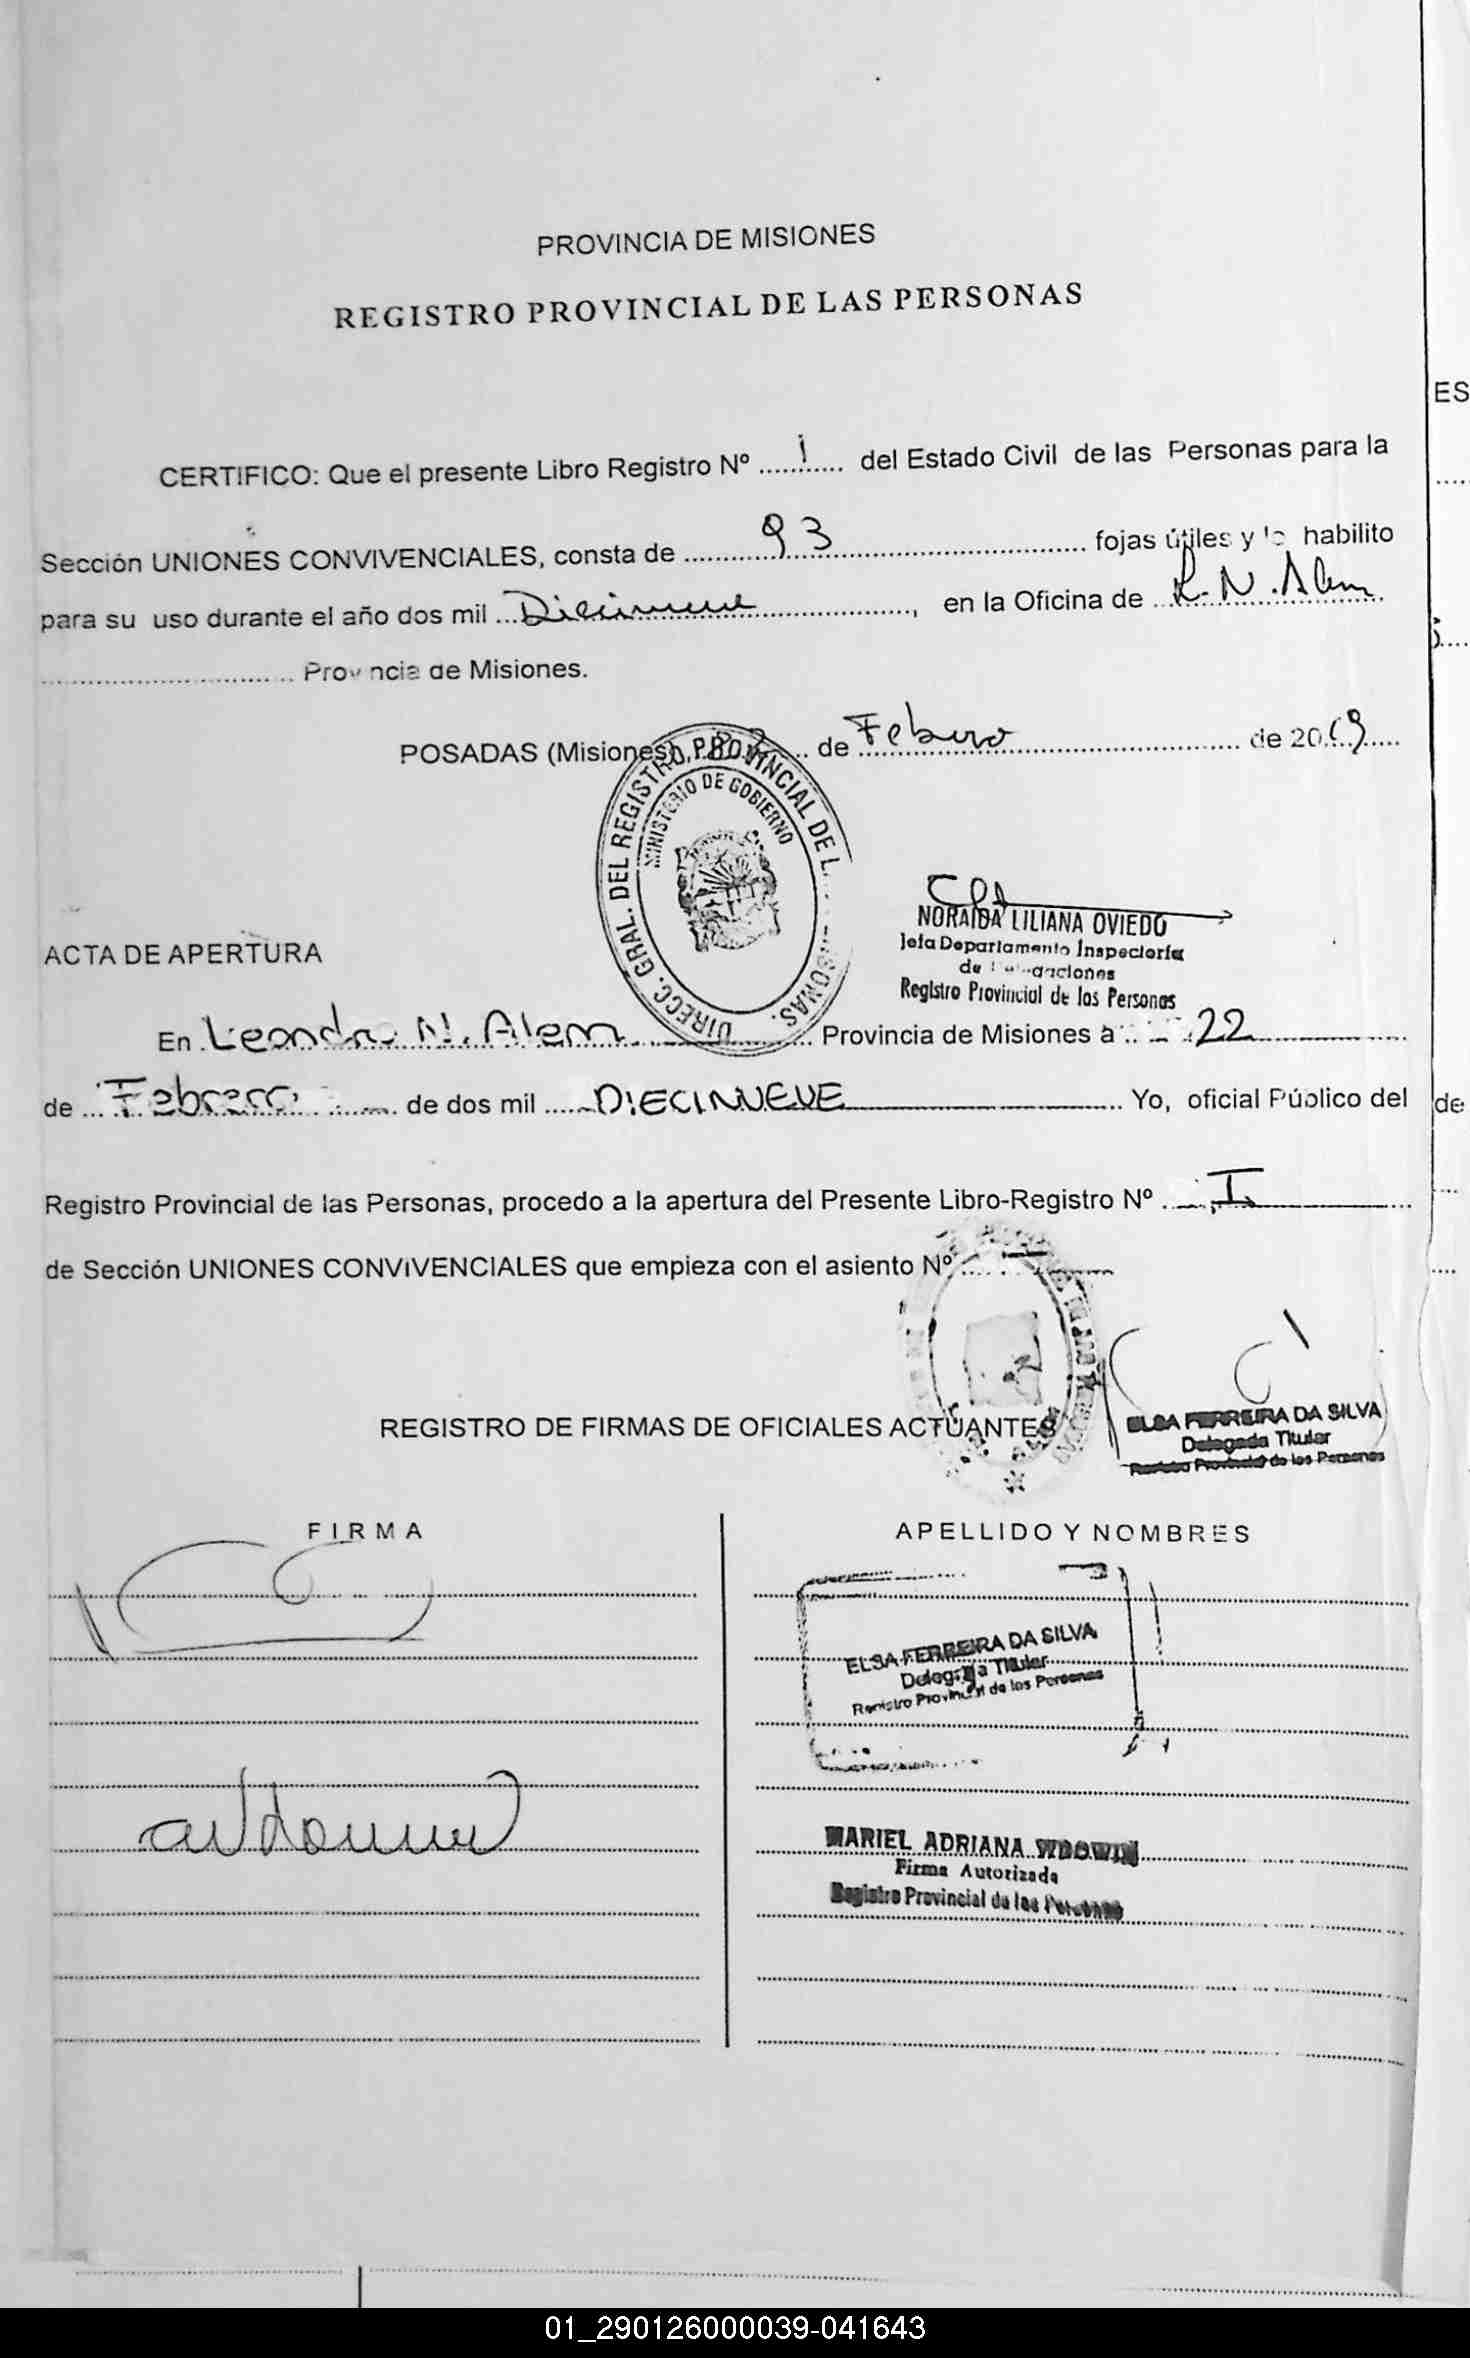 PROVINCIA DE MISIONES
REGISTRO PROVINCIAL DE LAS PERSONAS
ES
CERTIFICO: Que el presente Libro Registro Nº ....1.... del Estado Civil de las Personas para la
Sección UNIONES CONVIVENCIALES, consta de ......93...... fojas útiles y lo habilito
para su uso durante el año dos mil ...Diecinueve......, en la Oficina de ..L. N. Alem
.............................. Provincia de Misiones.
POSADAS (Misiones), 22 .... de Febrero ............ de 2019.....
DIRECC. GRAL. DEL REGISTRO PROVINCIAL DE L... PERSONAS.
MINISTERIO DE GOBIERNO
NORAIDA LILIANA OVIEDO
Jefa Departamento Inspectoría
de
Registro Provincial de las Personas
ACTA DE APERTURA
En .Leandro N. Alem............ Provincia de Misiones a ....22............
de ...Febrero........ de dos mil ......DIECINUEVE............ Yo, oficial Público del
de
Registro Provincial de las Personas, procedo a la apertura del Presente Libro-Registro Nº .....I............
de Sección UNIONES CONVIVENCIALES que empieza con el asiento Nº ........
ELSA FERREIRA DA SILVA
Delegada Titular
Registro Provincial de las Personas
REGISTRO DE FIRMAS DE OFICIALES ACTUANTES
FIRMA
APELLIDO Y NOMBRES
ELSA FERREIRA DA SILVA
Delegada Titular
Registro Provincial de las Personas
MARIEL ADRIANA WDOWIN
Firma Autorizada
Registro Provincial de las Personas
01_290126000039-041643